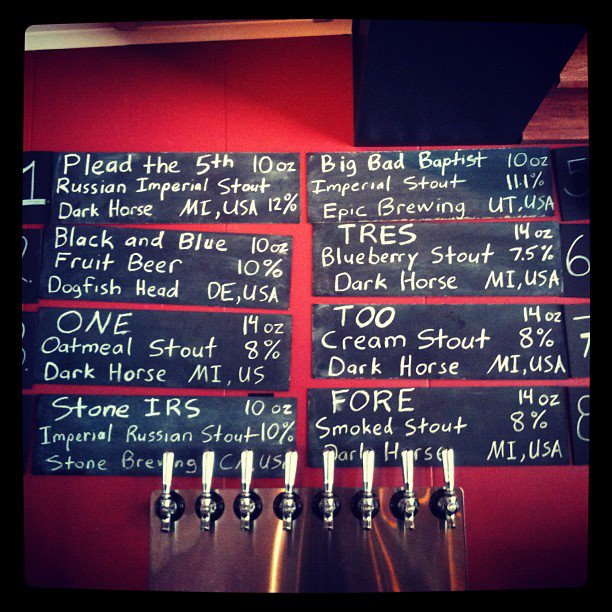 1
Plead the 5th 10 oz
Russian Imperial Stout
Dark Horse MI, USA 12%
Black and Blue 10 oz
Fruit Beer 10%
Dogfish Head DE, USA
ONE 14 oz
Oatmeal Stout 8%
Dark Horse MI, US
Stone IRS 10 oz
Imperial Russian Stout 10%
Stone Brewing CA USA
Big Bad Baptist 10 oz
Imperial Stout 11.1%
Epic Brewing UT, USA
5
TRES 14 oz
Blueberry Stout 7.5%
Dark Horse MI, USA
6
TOO 14 oz
Cream Stout 8%
Dark Horse MI, USA
7
FORE 14 oz
Smoked Stout 8%
Dark Horse MI, USA
8